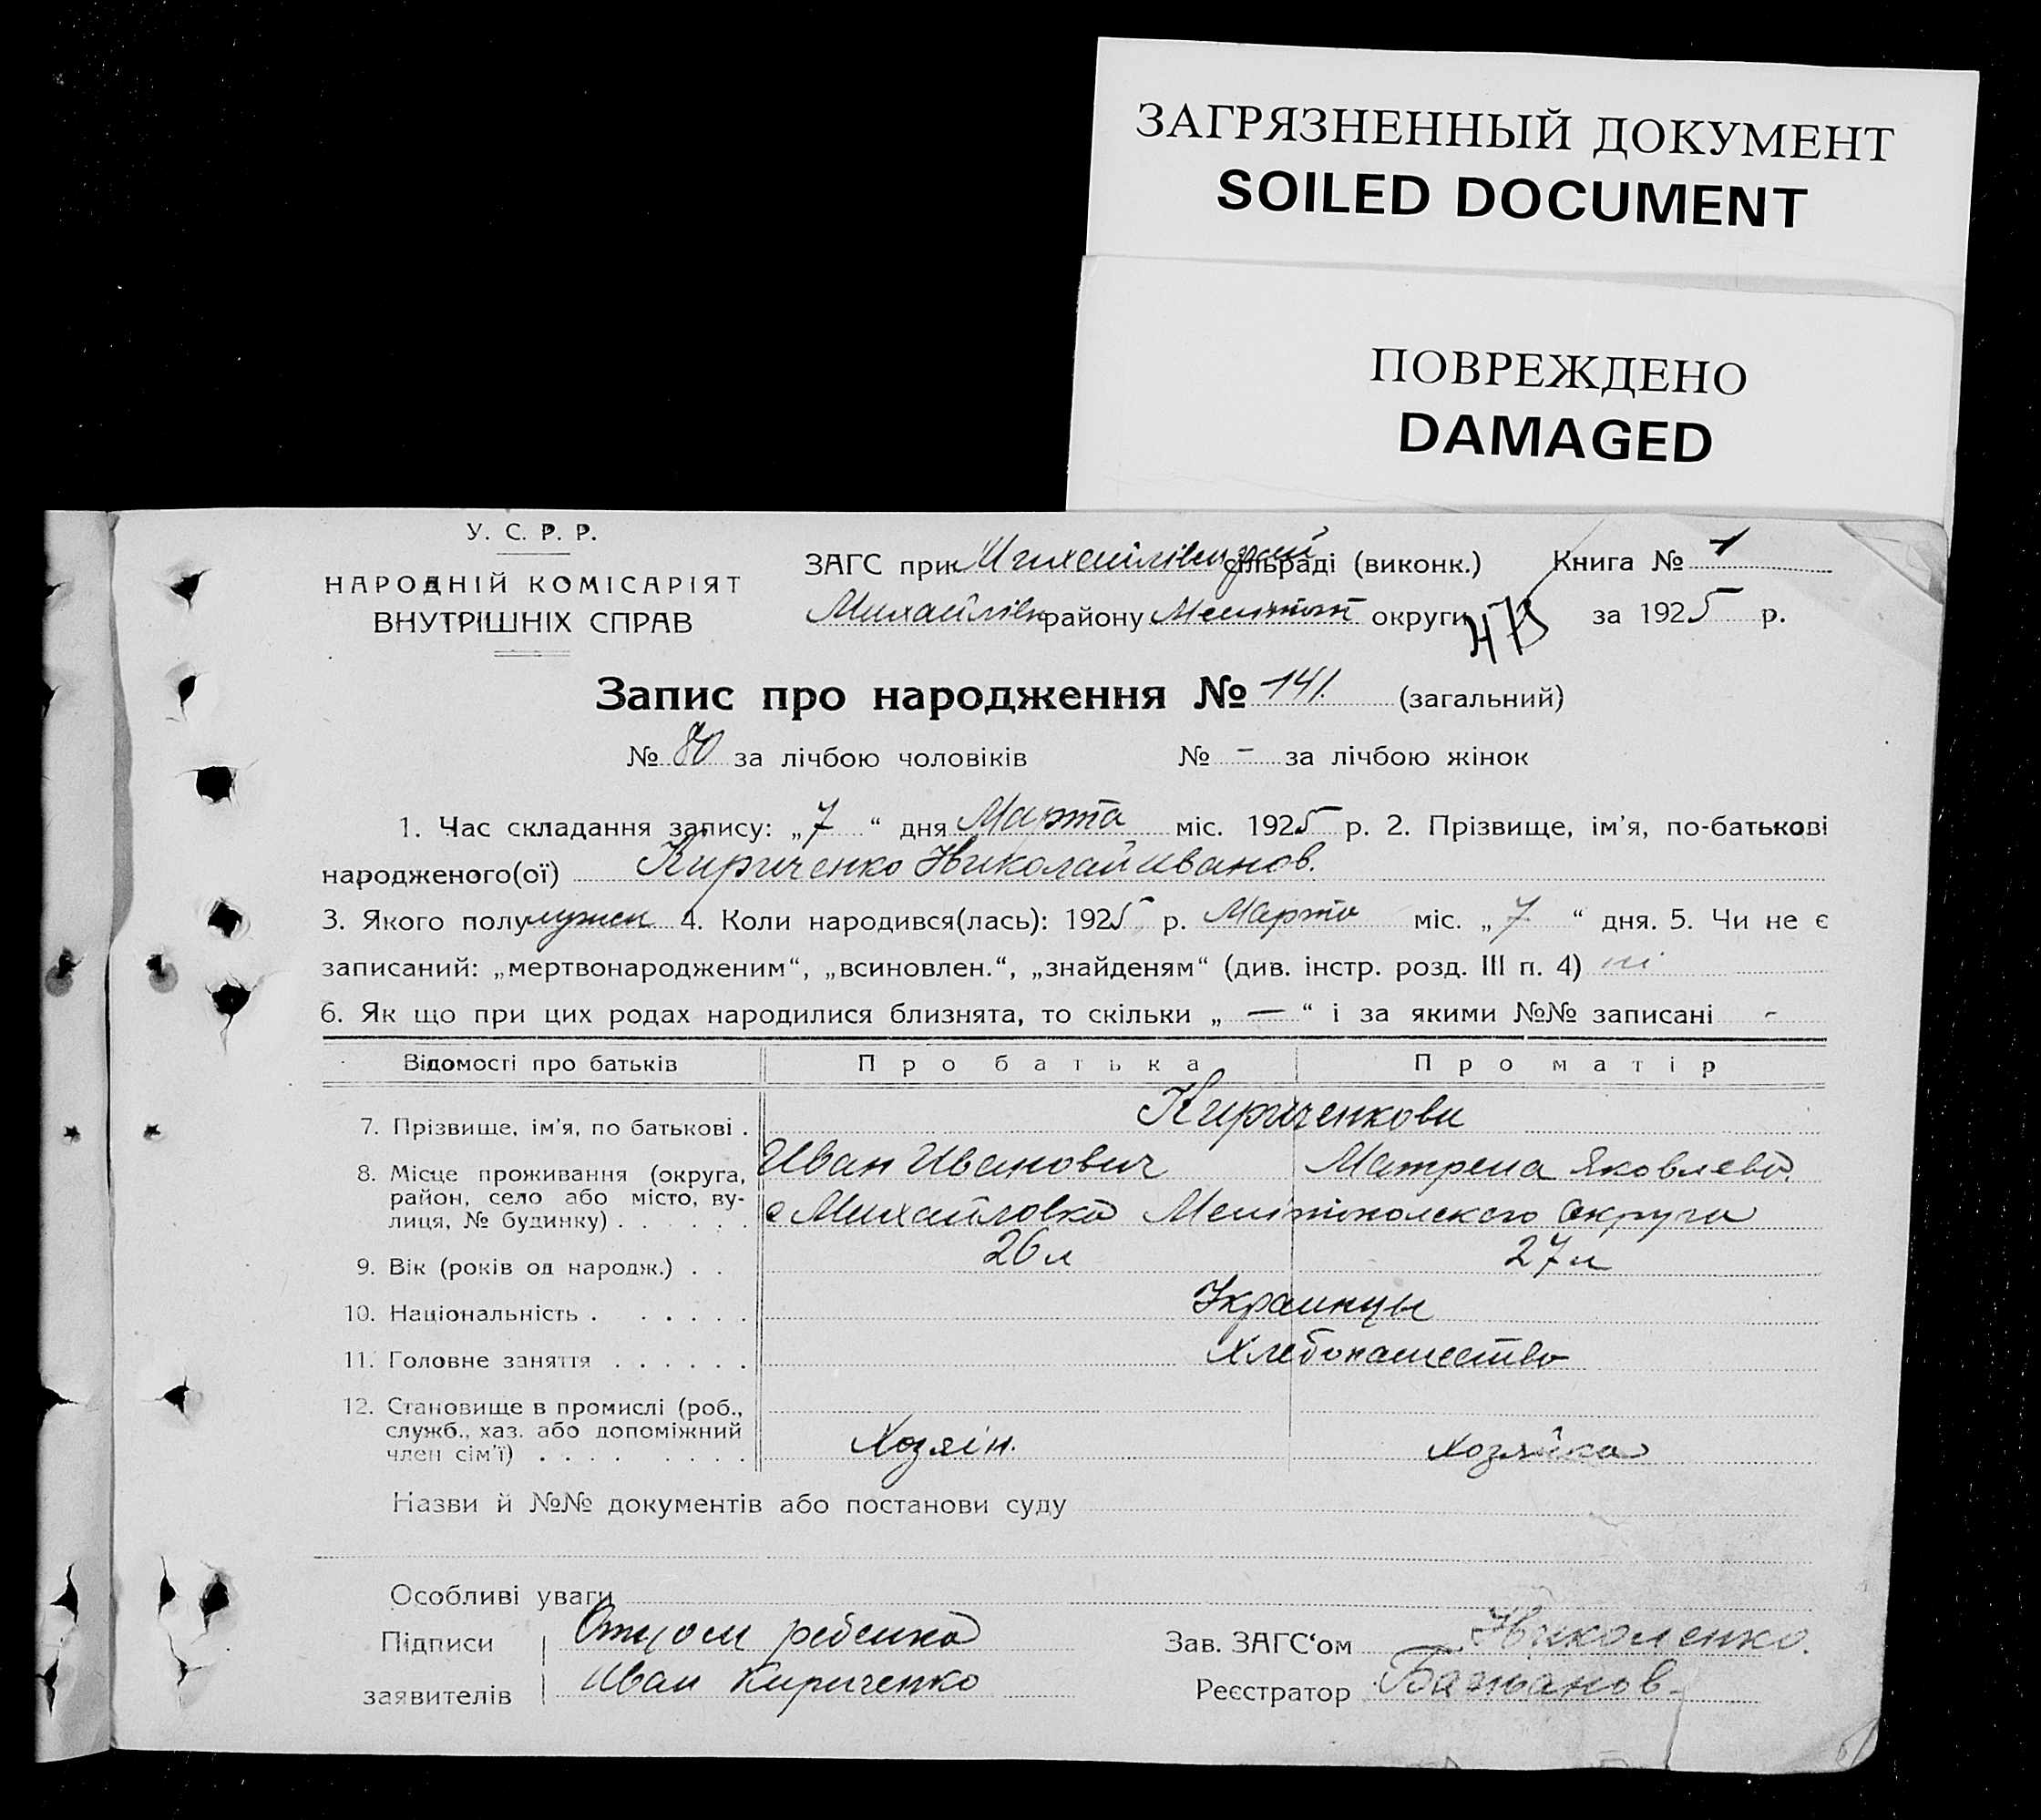 ЗАГРЯЗНЕННЫЙ ДОКУМЕНТ
SOILED DOCUMENT
ПОВРЕЖДЕНО
DAMAGED
У. С. Р. Р.
НАРОДНІЙ КОМІСАРІЯТ
ВНУТРІШНІХ СПРАВ
ЗАГС при сільраді (виконк.) Книга № 1
Михайлівк району Мелитоп округи за 1925 р.
Запис про народження № 141. (загальний)
№ 80 за лічбою чоловіків № - за лічбою жінок
1. Час складання запису: „7“ дня Марта міс. 1925 р. 2. Прізвище, ім'я, по-батькові
народженого(ої) Кириченко Николай иванов.
3. Якого полу мужск 4. Коли народився(лась): 1925 р. Марта міс. „7“ дня. 5. Чи не є
записаний: „мертвонародженим“, „всиновлен.“, „знайденям“ (див. інстр. розд. III п. 4) ні
6. Як що при цих родах народилися близнята, то скільки „ — “ і за якими №№ записані -
Відомості про батьків Про батька Про матір
7. Прізвище, ім'я, по батькові . Кириченкови
Иван Иванович Матрена Яковлева.
8. Місце проживання (округа,
район, село або місто, ву-
лиця, № будинку) . . . . . . с Михайловка Мелітополского Округа
9. Вік (років од народж.) . . 26 л 27 л
10. Національність . . . . . . Украинцы
11. Головне заняття . . . . . . Хлебопашество
12. Становище в промислі (роб.,
служб., хаз. або допоміжний
член сім'ї) . . . . . . . . Хозяін. хозяйка
Назви й №№ документів або постанови суду
Особливі уваги
Підписи Отцом ребенка Зав. ЗАГС‘ом Николенко.
заявителів Иван Кириченко Реєстратор